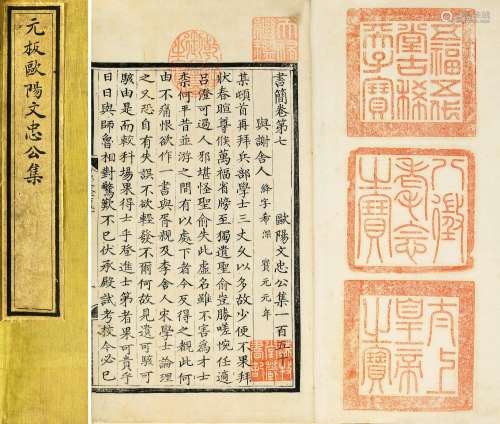 元板歐陽文忠公集
書簡卷第七
歐陽文忠公集一百五十
與謝舍人 絳字希深 寶元元年
某頓首再拜兵部學士三丈久以多故少便不果拜
狀春暄尊候萬福省牓至獨遺聖俞豈勝嗟惋任適
呂澄可過人邪堪怪聖俞失此虛名雖不害為才士
柰何平昔並游之間有以處下者今反得之覩此何
由不痛恨欲作一書與胥親及李舍人宋學士論理
之又恐自有失誤不欲輕發不爾何故見遺可駭可
駭由是而較科場果得士乎登進士第者果可貴乎
日日與師魯相對驚歎不已伏承殿試考校今必已
五福五代
堂古稀
天子寶
八徵
耄念
之寶
太上
皇帝
之寶